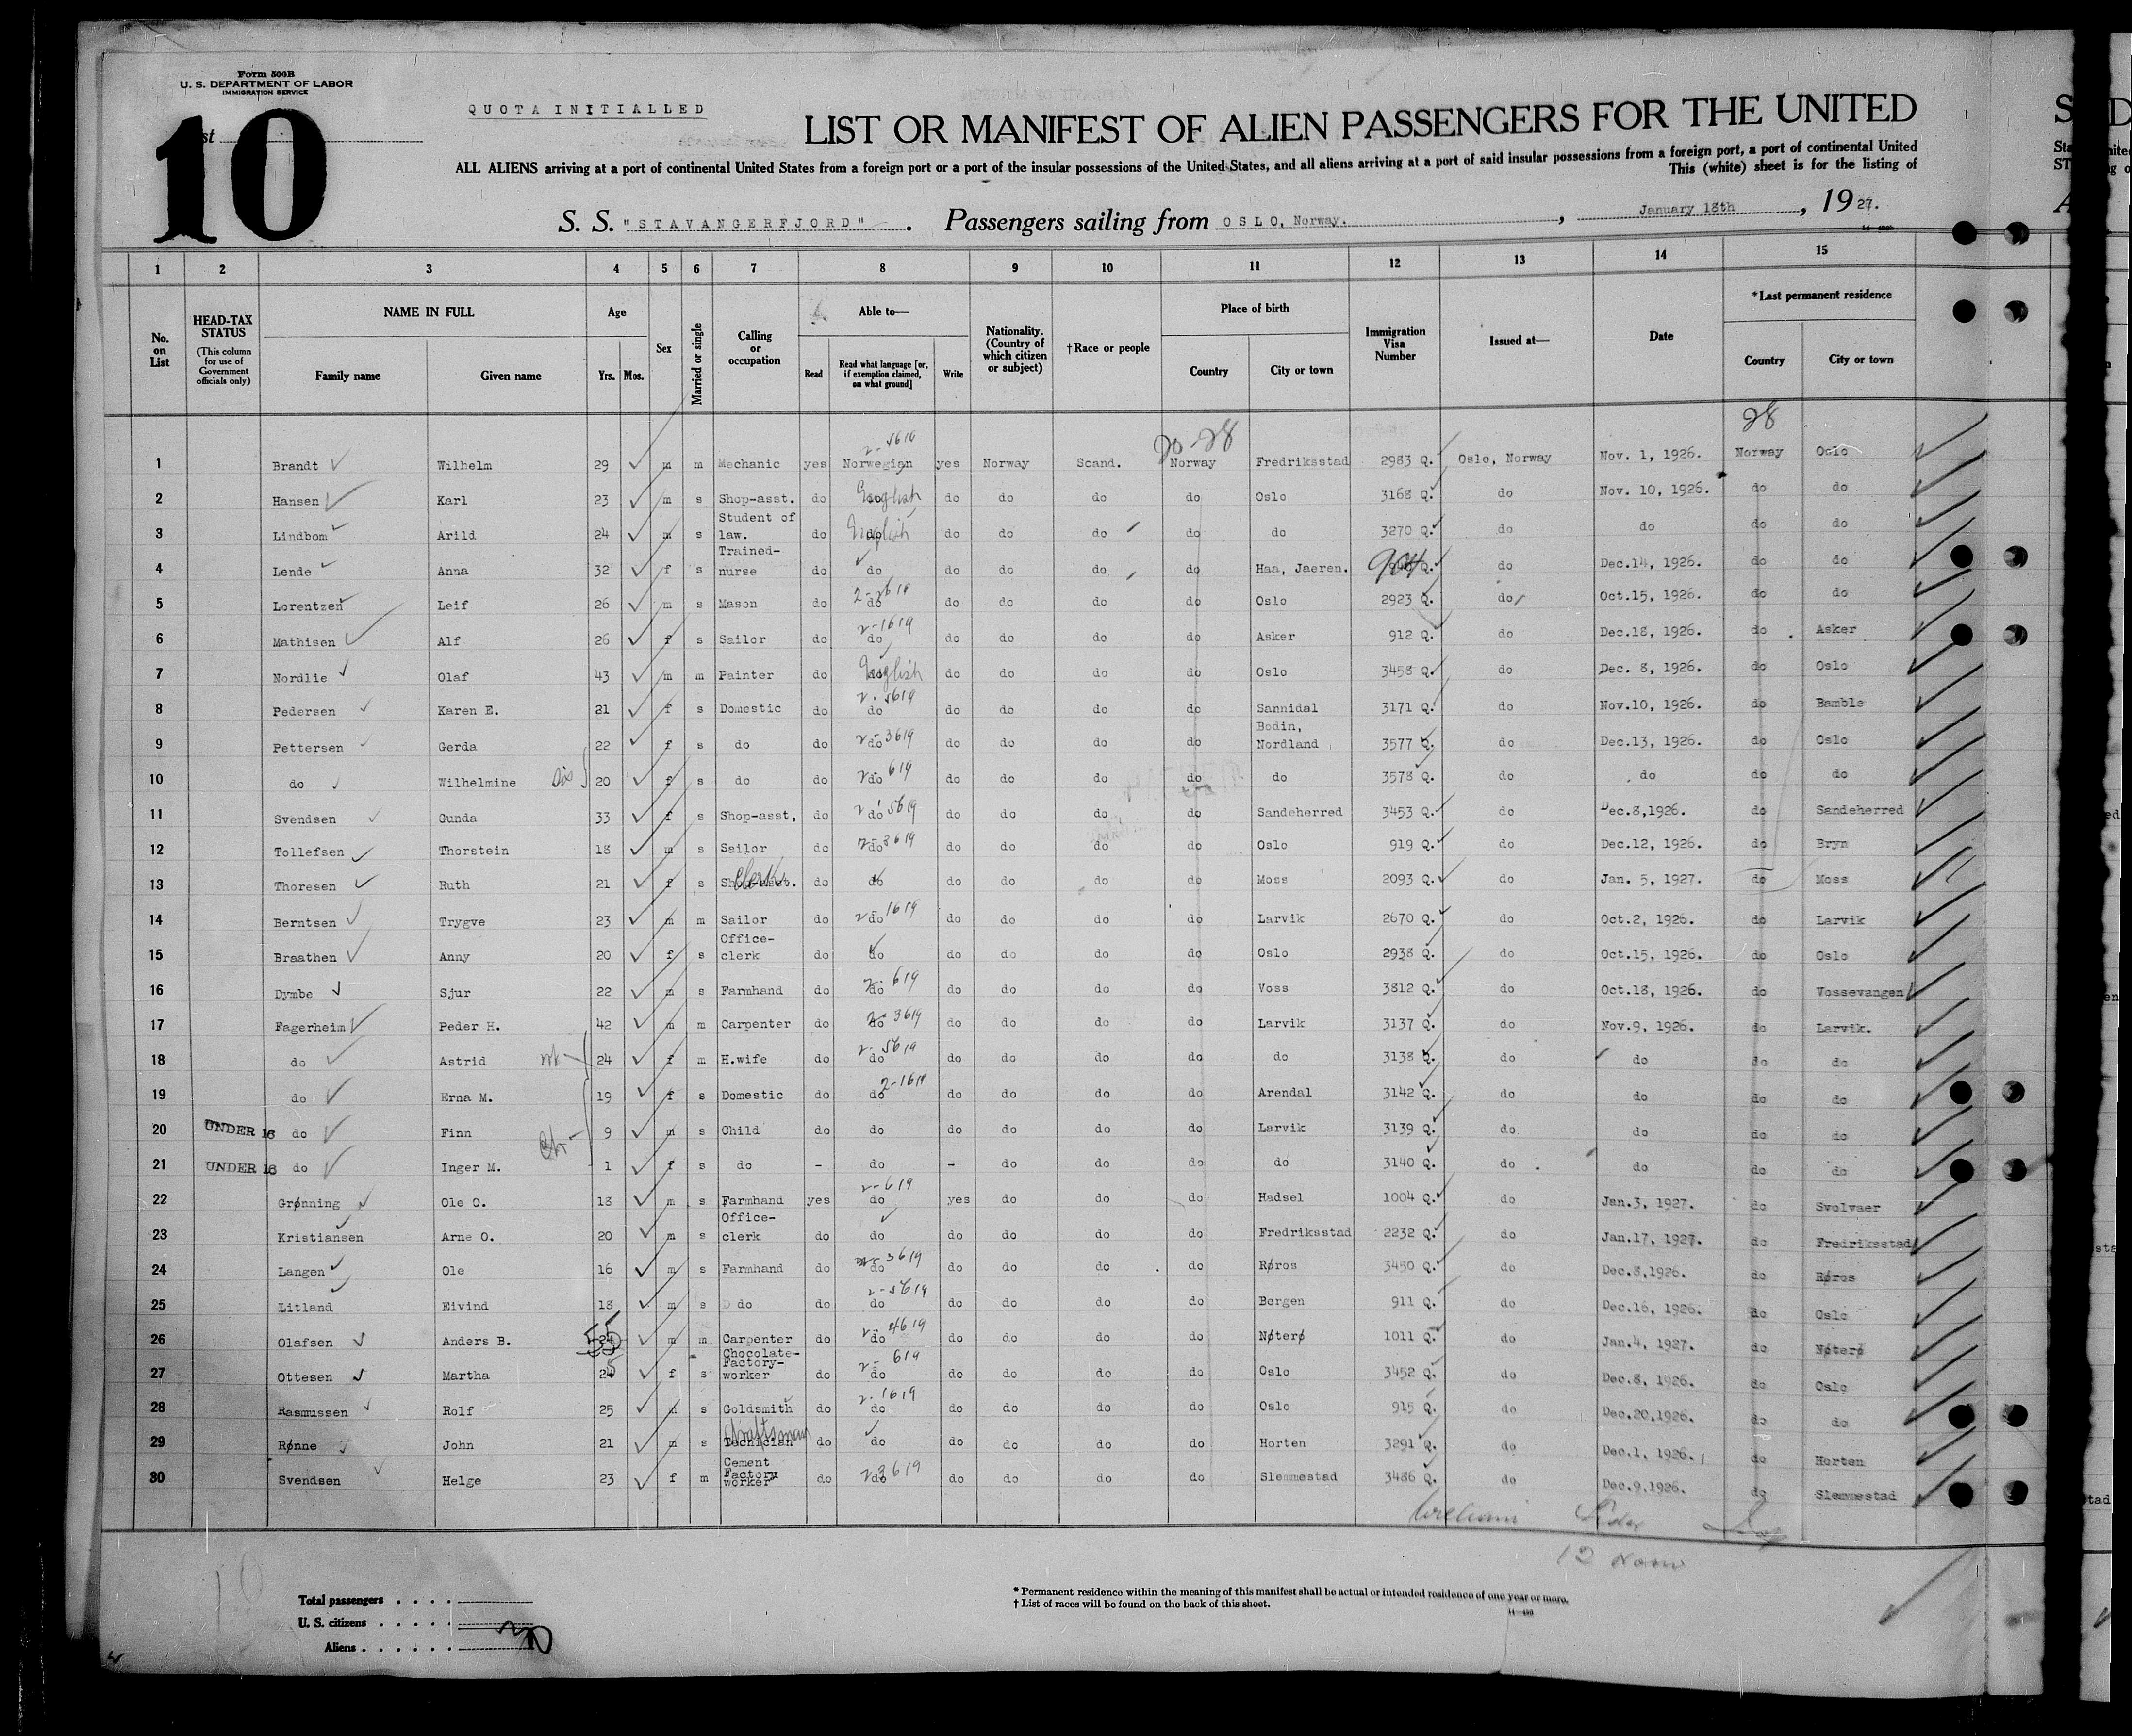 Form 500B
U. S. DEPARTMENT OF LABOR
IMMIGRATION SERVICE
10
QUOTA INITIALLED
LIST OR MANIFEST OF ALIEN PASSENGERS FOR THE UNITED
ALL ALIENS arriving at a port of continental United States from a foreign port or a port of the insular possessions of the United States, and all aliens arriving at a port of said insular possessions from a foreign port, a port of continental United
This (white) sheet is for the listing of
S. S. "STAVANGERFJORD" . Passengers sailing from OSLO, Norway. , January 18th , 1927.
1 2 3 4 5 6 7 8 9 10 11 12 13 14 15
No. on List
HEAD-TAX STATUS (This column for use of Government officials only)
NAME IN FULL Family name Given name
Age Yrs. Mos.
Sex
Married or single
Calling or occupation
Able to— Read Read what language [or, if exemption claimed, on what ground] Write
Nationality. (Country of which citizen or subject)
†Race or people
Place of birth Country City or town
Immigration Visa Number
Issued at—
Date
*Last permanent residence Country City or town
20-28 28
1 Brandt Wilhelm 29 m m Mechanic yes Norwegian yes Norway Scand. Norway Fredriksstad 2983 Q. Oslo, Norway Nov. 1, 1926. Norway Oslo
2 Hansen Karl 23 m s Shop-asst. do English do do do do Oslo 3168 Q. do Nov. 10, 1926. do do
3 Lindbom Arild 24 m s Student of law. do English do do do do do 3270 Q. do do do do
4 Lende Anna 32 f s Trained-nurse do do do do do do Haa, Jaeren. 904 Q. do Dec.14, 1926. do do
5 Lorentzen Leif 26 m s Mason do do do do do do Oslo 2923 Q. do Oct.15, 1926. do do
6 Mathisen Alf 26 f s Sailor do do do do do do Asker 912 Q. do Dec.18, 1926. do Asker
7 Nordlie Olaf 43 m m Painter do English do do do do Oslo 3458 Q. do Dec. 8, 1926. do Oslo
8 Pedersen Karen E. 21 f s Domestic do do do do do do Sannidal 3171 Q. do Nov.10, 1926. do Bamble
9 Pettersen Gerda 22 f s do do do do do do do Bodin, Nordland 3577 Q. do Dec.13, 1926. do Oslo
10 do Wilhelmine Sis 20 f s do do do do do do do do 3578 Q. do do do do
11 Svendsen Gunda 33 f s Shop-asst, do do do do do do Sandeherred 3453 Q. do Dec.8,1926. do Sandeherred
12 Tollefsen Thorstein 18 m s Sailor do do do do do do Oslo 919 Q. do Dec.12, 1926. do Bryn
13 Thoresen Ruth 21 f s Clerk do do do do do do Moss 2093 Q. do Jan. 5, 1927. do Moss
14 Berntsen Trygve 23 m m Sailor do do do do do do Larvik 2670 Q. do Oct.2, 1926. do Larvik
15 Braathen Anny 20 f s Office-clerk do do do do do do Oslo 2938 Q. do Oct.15, 1926. do Oslo
16 Dymbe Sjur 22 m s Farmhand do do do do do do Voss 3812 Q. do Oct.18, 1926. do Vossevangen
17 Fagerheim Peder H. 42 m m Carpenter do do do do do do Larvik 3137 Q. do Nov.9, 1926. do Larvik.
18 do Astrid 24 f m H.wife do do do do do do do 3138 Q. do do do do
19 do Erna M. 19 f s Domestic do do do do do do Arendal 3142 Q. do do do do
20 UNDER 16 do Finn 9 m s Child do do do do do do Larvik 3139 Q. do do do do
21 UNDER 16 do Inger M. 1 f s do - do - do do do do 3140 Q. do do do do
22 Grønning Ole O. 18 m s Farmhand yes do yes do do do Hadsel 1004 Q. do Jan.3, 1927. do Svolvaer
23 Kristiansen Arne O. 20 m s Office-clerk do do do do do do Fredriksstad 2232 Q. do Jan.17, 1927. do Fredriksstad
24 Langen Ole 16 m s Farmhand do do do do do do Røros 3450 Q. do Dec.8,1926. do Røros
25 Litland Eivind 18 m s do do do do do do do Bergen 911 Q. do Dec.16, 1926. do Oslo
26 Olafsen Anders B. 55 m m Carpenter do do do do do do Nøterø 1011 Q. do Jan.4, 1927. do Nøterø
27 Ottesen Martha 25 f s Chocolate-Factory-worker do do do do do do Oslo 3452 Q. do Dec.8, 1926. do Oslo
28 Rasmussen Rolf 25 m s Goldsmith do do do do do do Oslo 915 Q. do Dec.20,1926. do do
29 Rønne John 21 m s Draftsman Technician do do do do do do Horten 3291 Q. do Dec.1, 1926. do Horten
30 Svendsen Helge 23 f m Cement Factory worker do do do do do do Slemmestad 3486 Q. do Dec.9.1926. do Slemmestad
12 noon
Total passengers
U. S. citizens
Aliens
* Permanent residence within the meaning of this manifest shall be actual or intended residence of one year or more.
† List of races will be found on the back of this sheet.